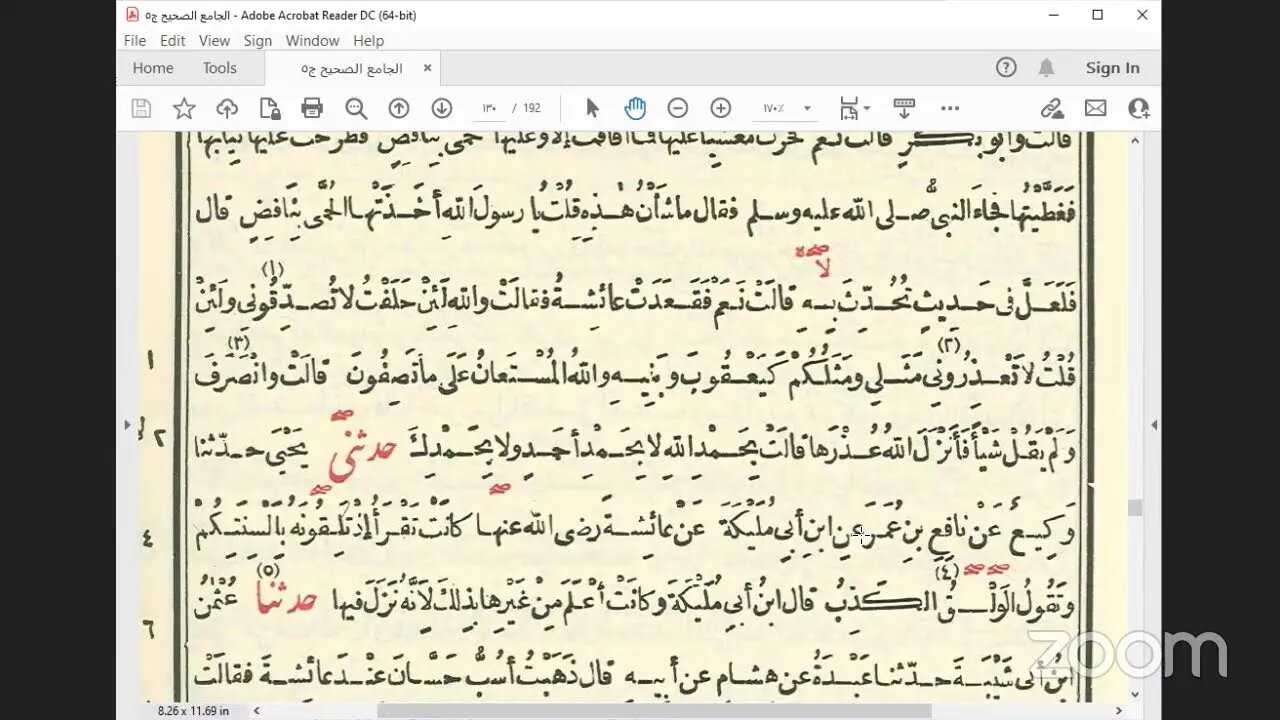 الجامع الصحيح ج٥ - Adobe Acrobat Reader DC (64-bit)
File Edit View Sign Window Help
Home Tools الجامع الصحيح ج٥ × Sign In
١٣٠ / 192 ١٧٠٪
قالت وأبو بكر قالت نعم فخرت مغشيا عليها فما أفاقت إلا وعليها حمى بنافض فطرحت عليها ثيابها
فَغَطَّيْتُها فجاءَ النبىُّ صلى الله عليه وسلم فقال ما شَأْنُ هٰذِهِ قُلْتُ يا رسولَ اللهِ أَخَذَتْها الحُمَّى بِنَافِضٍ قال
لا
فَلَعَلَّ فى حَدِيثٍ تُحُدِّثَ بِهِ قالَتْ نَعَمْ فَقَعَدَتْ عائِشةُ فقالَتْ والله لَئِنْ حَلَفْتُ لا تُصَدِّقُونى (١) ولَئِنْ
قُلْتُ لا تَعْذِرُونِى (٢) مَثَلِى ومَثَلُكُمْ كَيَعْقُوبَ وبَنِيهِ واللهُ المُسْتَعانُ عَلَى ما تَصِفُونَ قالَتْ وانْصَرَفَ (٣)
١
وَلَمْ يَقُلْ شَيْأً فَأَنْزَلَ اللهُ عُذْرَها قالَتْ بِحَمْدِ اللهِ لا بِحَمْدِ أَحَدٍ ولا بِحَمْدِكَ حدثنى يَحْيَى حدّثنا
٢
وَكِيعٌ عَنْ نافِعِ بنِ عُمَرَ عنِ ابنِ أبِى مُلَيْكَةَ عَنْ عائِشةَ رضى الله عنها كانَتْ تَقْرَأُ إذْ تَلِقُونَهُ بِأَلْسِنَتِكُمْ
٤
وتَقُولُ الوَلْقُ (٤) الكَذِبُ قال ابنُ أبِى مُلَيْكَةَ وكانَتْ أَعْلَمَ مِنْ غَيْرِها بِذٰلِكَ لِأَنَّهُ نَزَلَ فِيها (٥) حدثنا عُثْمٰنُ
٦
ابنُ أبى شَيْبَةَ حدّثنا عَبْدَةُ عن هشام عن أبيه قال ذَهَبْتُ أَسُبُّ حَسَّانَ عِنْدَ عائشةَ فقالَتْ
zoom
8.26 x 11.69 in